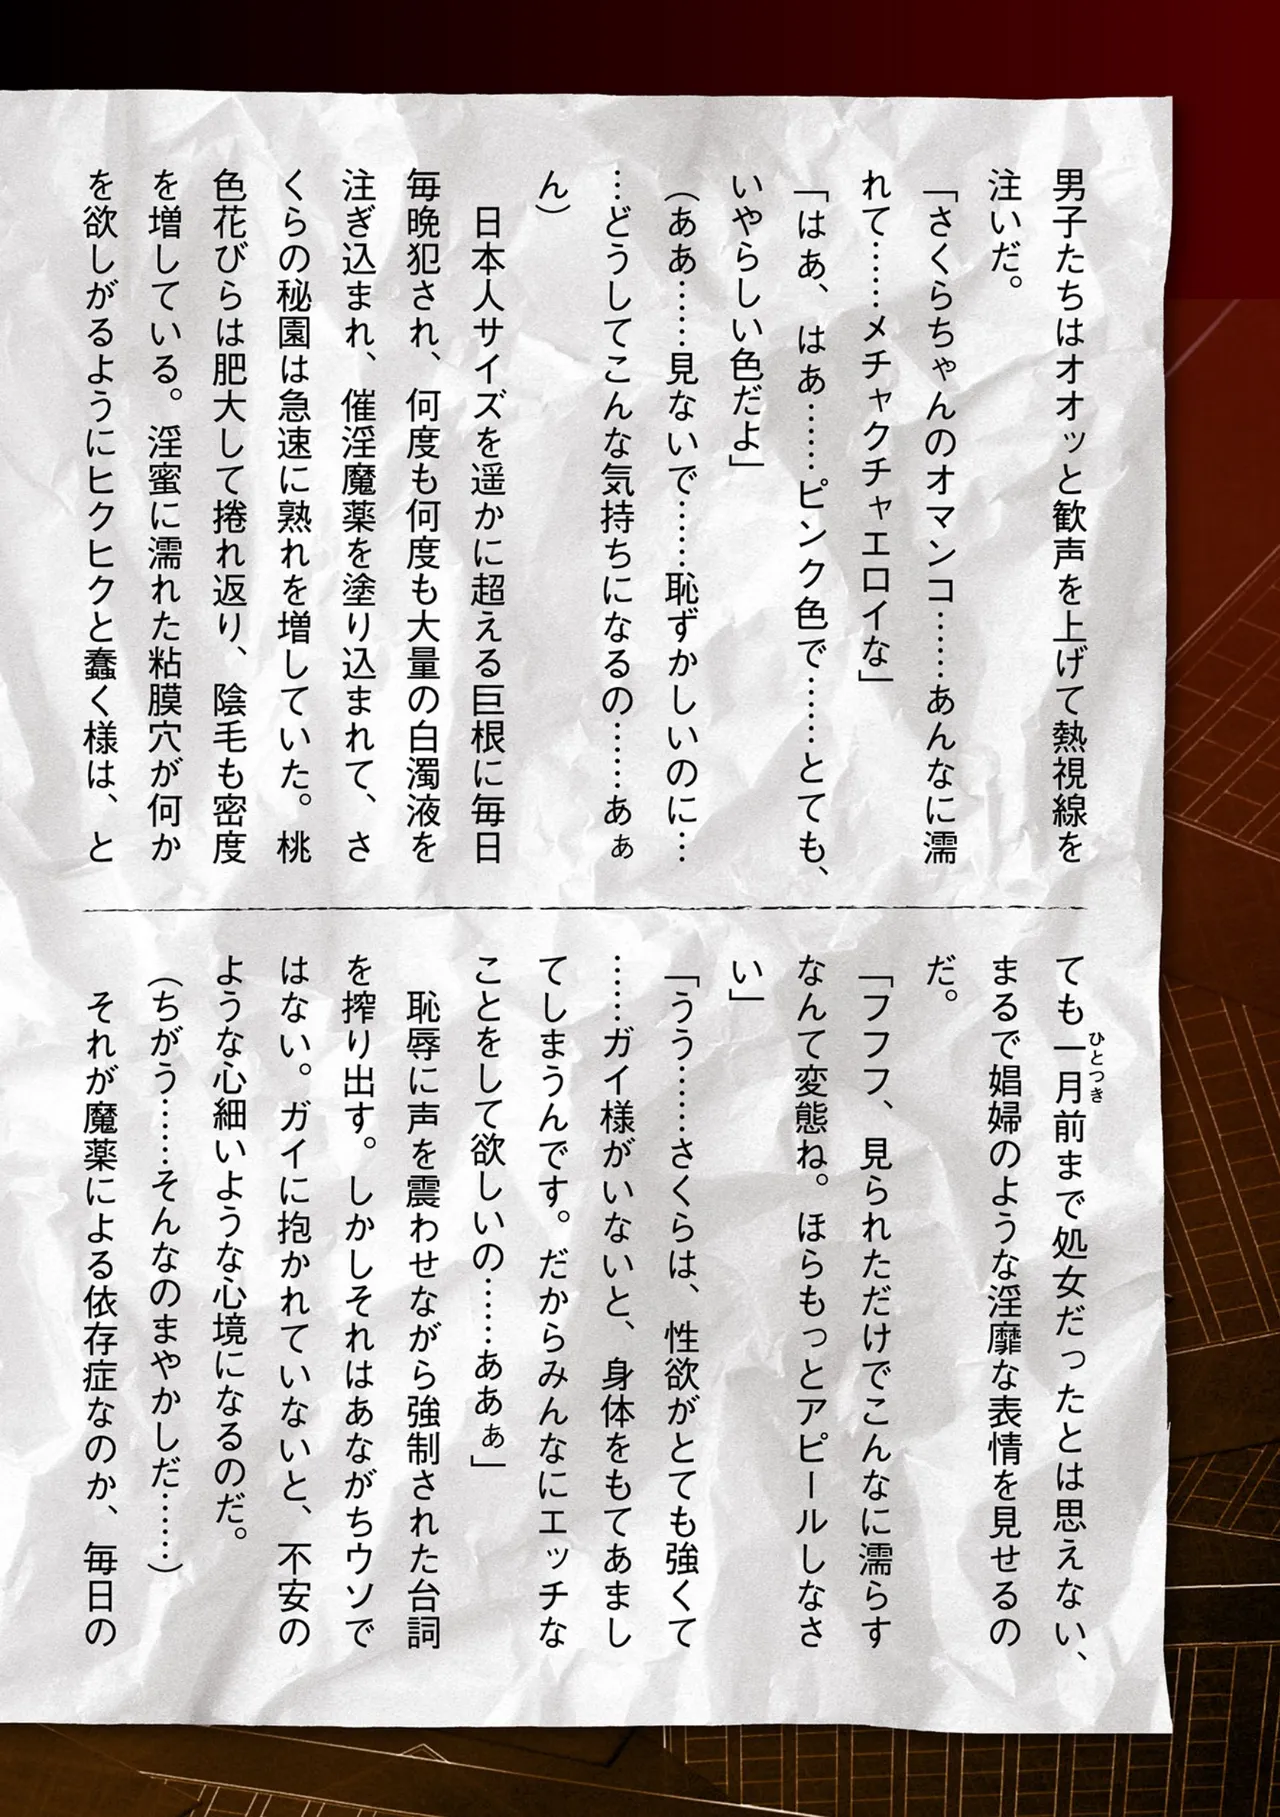 男子たちはオオッと歓声を上げて熱視線を
注いだ。
「さくらちゃんのオマンコ……あんなに濡
れて……メチャクチャエロイな」
「はあ、はあ……ピンク色で……とても、
いやらしい色だよ」
（ああ……見ないで……恥ずかしいのに…
…どうしてこんな気持ちになるの……あぁ
ん）
　日本人サイズを遥かに超える巨根に毎日
毎晩犯され、何度も何度も大量の白濁液を
注ぎ込まれ、催淫魔薬を塗り込まれて、さ
くらの秘園は急速に熟れを増していた。桃
色花びらは肥大して捲れ返り、陰毛も密度
を増している。淫蜜に濡れた粘膜穴が何か
を欲しがるようにヒクヒクと蠢く様は、と
ても一月前まで処女だったとは思えない、
ひとつき
まるで娼婦のような淫靡な表情を見せるの
だ。
「フフフ、見られただけでこんなに濡らす
なんて変態ね。ほらもっとアピールしなさ
い」
「うう……さくらは、性欲がとても強くて
……ガイ様がいないと、身体をもてあまし
てしまうんです。だからみんなにエッチな
ことをして欲しいの……ああぁ」
　恥辱に声を震わせながら強制された台詞
を搾り出す。しかしそれはあながちウソで
はない。ガイに抱かれていないと、不安の
ような心細いような心境になるのだ。
（ちがう……そんなのまやかしだ……）
　それが魔薬による依存症なのか、毎日の